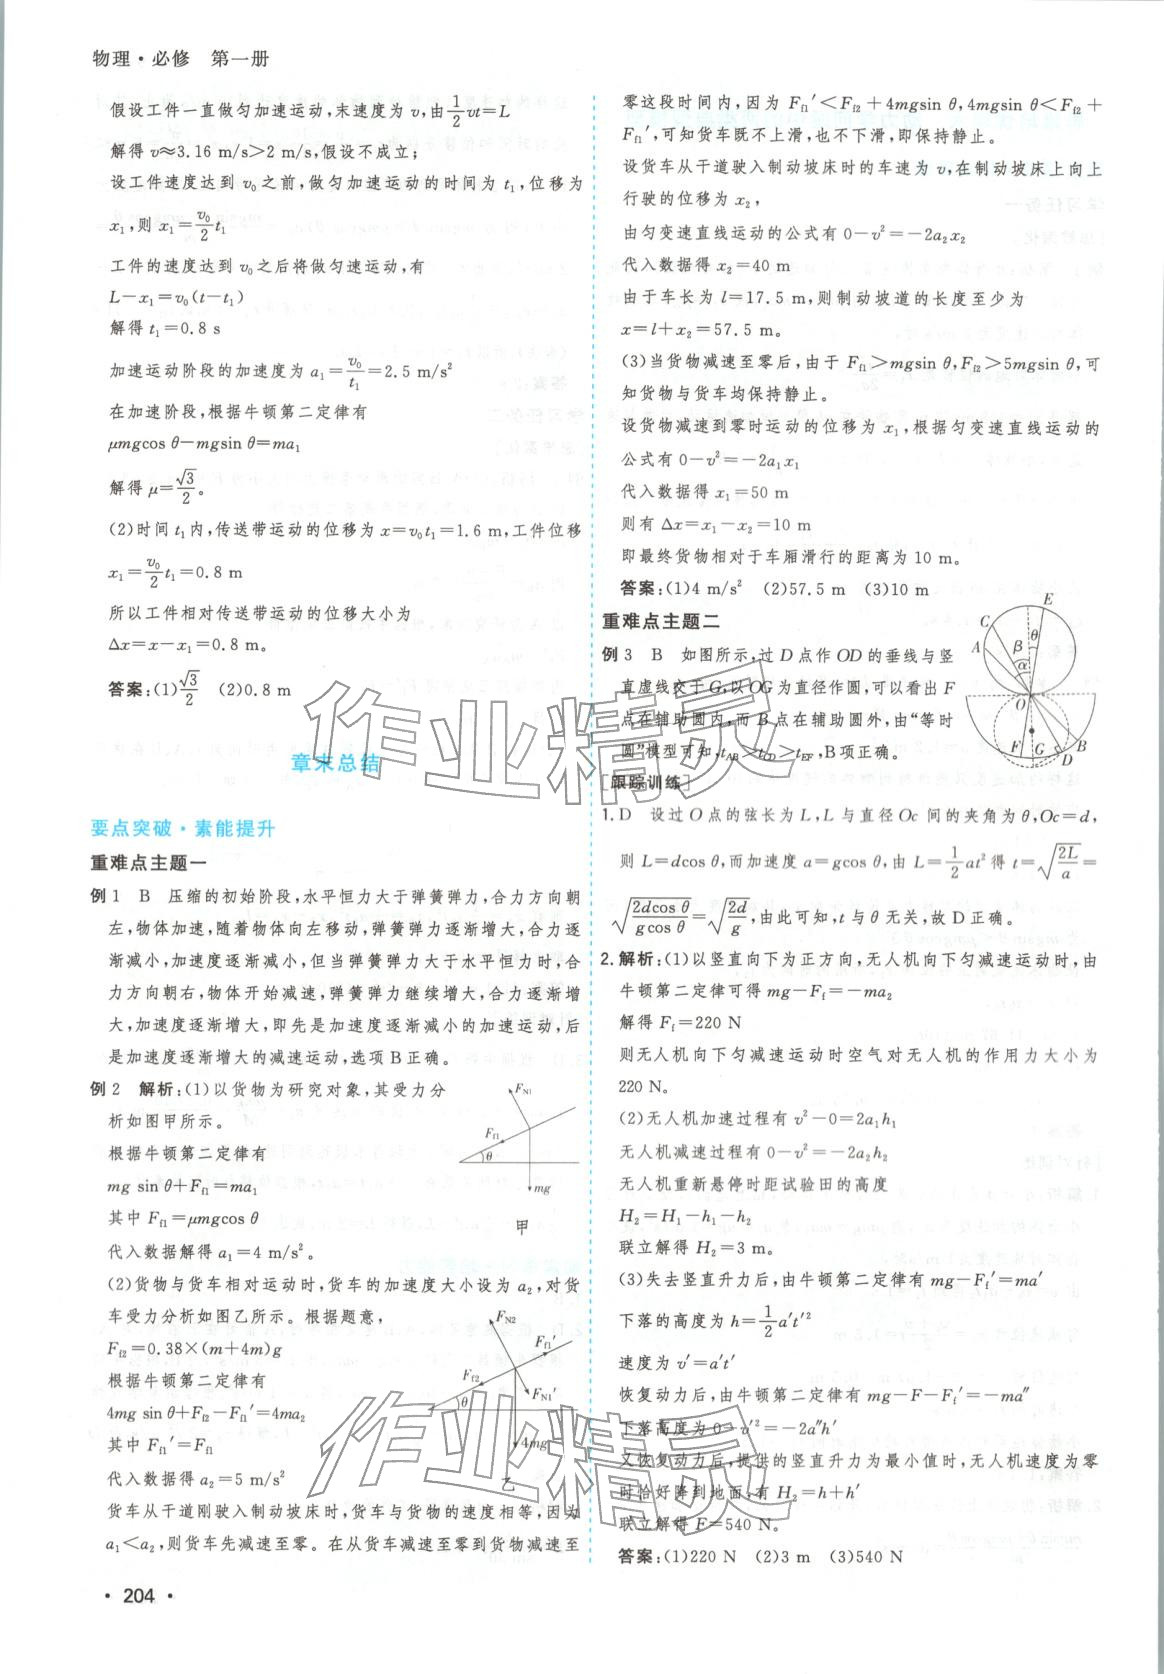 物理·必修　第一册
假设工件一直做匀加速运动,末速度为 v,由 1/2 vt=L
解得 v≈3.16 m/s>2 m/s,假设不成立;
设工件速度达到 v₀ 之前,做匀加速运动的时间为 t₁,位移为
x₁,则 x₁=v₀/2 t₁
工件的速度达到 v₀之后将做匀速运动,有
L-x₁=v₀(t-t₁)
解得 t₁=0.8 s
加速运动阶段的加速度为 a₁=v₀/t₁=2.5 m/s²
在加速阶段,根据牛顿第二定律有
μmgcos θ-mgsin θ=ma₁
解得 μ=√3/2。
(2)时间 t₁内,传送带运动的位移为 x=v₀t₁=1.6 m,工件位移
x₁=v₀/2 t₁=0.8 m
所以工件相对传送带运动的位移大小为
Δx=x-x₁=0.8 m。
答案:(1)√3/2　(2)0.8 m
章末总结
要点突破·素能提升
重难点主题一
例 1　B　压缩的初始阶段,水平恒力大于弹簧弹力,合力方向朝
左,物体加速,随着物体向左移动,弹簧弹力逐渐增大,合力逐
渐减小,加速度逐渐减小,但当弹簧弹力大于水平恒力时,合
力方向朝右,物体开始减速,弹簧弹力继续增大,合力逐渐增
大,加速度逐渐增大,即先是加速度逐渐减小的加速运动,后
是加速度逐渐增大的减速运动,选项 B 正确。
例 2　解析:(1)以货物为研究对象,其受力分
析如图甲所示。
根据牛顿第二定律有
mg sin θ+Ff1=ma₁
其中 Ff1=μmgcos θ
代入数据解得 a₁=4 m/s²。
FN1
Ff1
θ
mg
甲
(2)货物与货车相对运动时,货车的加速度大小设为 a₂,对货
车受力分析如图乙所示。根据题意,
Ff2=0.38×(m+4m)g
根据牛顿第二定律有
4mg sin θ+Ff2-Ff1′=4ma₂
其中 Ff1′=Ff1
代入数据解得 a₂=5 m/s²
FN2
Ff1′
Ff2
FN1′
θ
4mg
乙
货车从干道刚驶入制动坡床时,货车与货物的速度相等,因为
a₁<a₂,则货车先减速至零。在从货车减速至零到货物减速至
· 204 ·
零这段时间内,因为 Ff1′<Ff2+4mgsin θ,4mgsin θ<Ff2+
Ff1′,可知货车既不上滑,也不下滑,即保持静止。
设货车从干道驶入制动坡床时的车速为 v,在制动坡床上向上
行驶的位移为 x₂,
由匀变速直线运动的公式有 0-v²=-2a₂x₂
代入数据得 x₂=40 m
由于车长为 l=17.5 m,则制动坡道的长度至少为
x=l+x₂=57.5 m。
(3)当货物减速至零后,由于 Ff1>mgsin θ,Ff2>5mgsin θ,可
知货物与货车均保持静止。
设货物减速到零时运动的位移为 x₁,根据匀变速直线运动的
公式有 0-v²=-2a₁x₁
代入数据得 x₁=50 m
则有 Δx=x₁-x₂=10 m
即最终货物相对于车厢滑行的距离为 10 m。
答案:(1)4 m/s²　(2)57.5 m　(3)10 m
重难点主题二
例 3　B　如图所示,过 D 点作 OD 的垂线与竖
直虚线交于 G,以 OG 为直径作圆,可以看出 F
点在辅助圆内,而 B 点在辅助圆外,由“等时
圆”模型可知,tAB>tCD>tEF,B 项正确。
E
C
θ
A
β
α
O
F
G
B
D
[跟踪训练]
1. D　设过 O 点的弦长为 L,L 与直径 Oc 间的夹角为 θ,Oc=d,
则 L=dcos θ,而加速度 a=gcos θ,由 L=1/2 at² 得 t=√(2L/a)=
√(2dcos θ/gcos θ)=√(2d/g),由此可知,t 与 θ 无关,故 D 正确。
2. 解析:(1)以竖直向下为正方向,无人机向下匀减速运动时,由
牛顿第二定律可得 mg-Ff=-ma₂
解得 Ff=220 N
则无人机向下匀减速运动时空气对无人机的作用力大小为
220 N。
(2)无人机加速过程有 v²-0=2a₁h₁
无人机减速过程有 0-v²=-2a₂h₂
无人机重新悬停时距试验田的高度
H₂=H₁-h₁-h₂
联立解得 H₂=3 m。
(3)失去竖直升力后,由牛顿第二定律有 mg-Ff′=ma′
下落的高度为 h=1/2 a′t′²
速度为 v′=a′t′
恢复动力后,由牛顿第二定律有 mg-F-Ff′=-ma″
下落高度为 0-v′²=-2a″h′
又恢复动力后,提供的竖直升力为最小值时,无人机速度为零
时恰好降到地面,有 H₂=h+h′
联立解得 F=540 N。
答案:(1)220 N　(2)3 m　(3)540 N
作业精灵
作业精灵